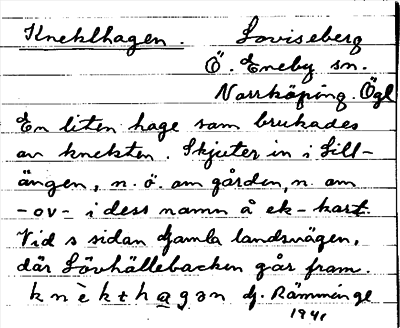 Knekthagen. Loviseberg
Ö. Eneby sn.
Norrköping. Ögl
En liten hage som brukades
av knekten. Skjuter in i Lill-
ängen, n. ö. om gården, n. om
-ov- i dess namn å ek-kart.
Vid s sidan gamla landsvägen,
där Lövhällebacken går fram.
knèkthagən
1941